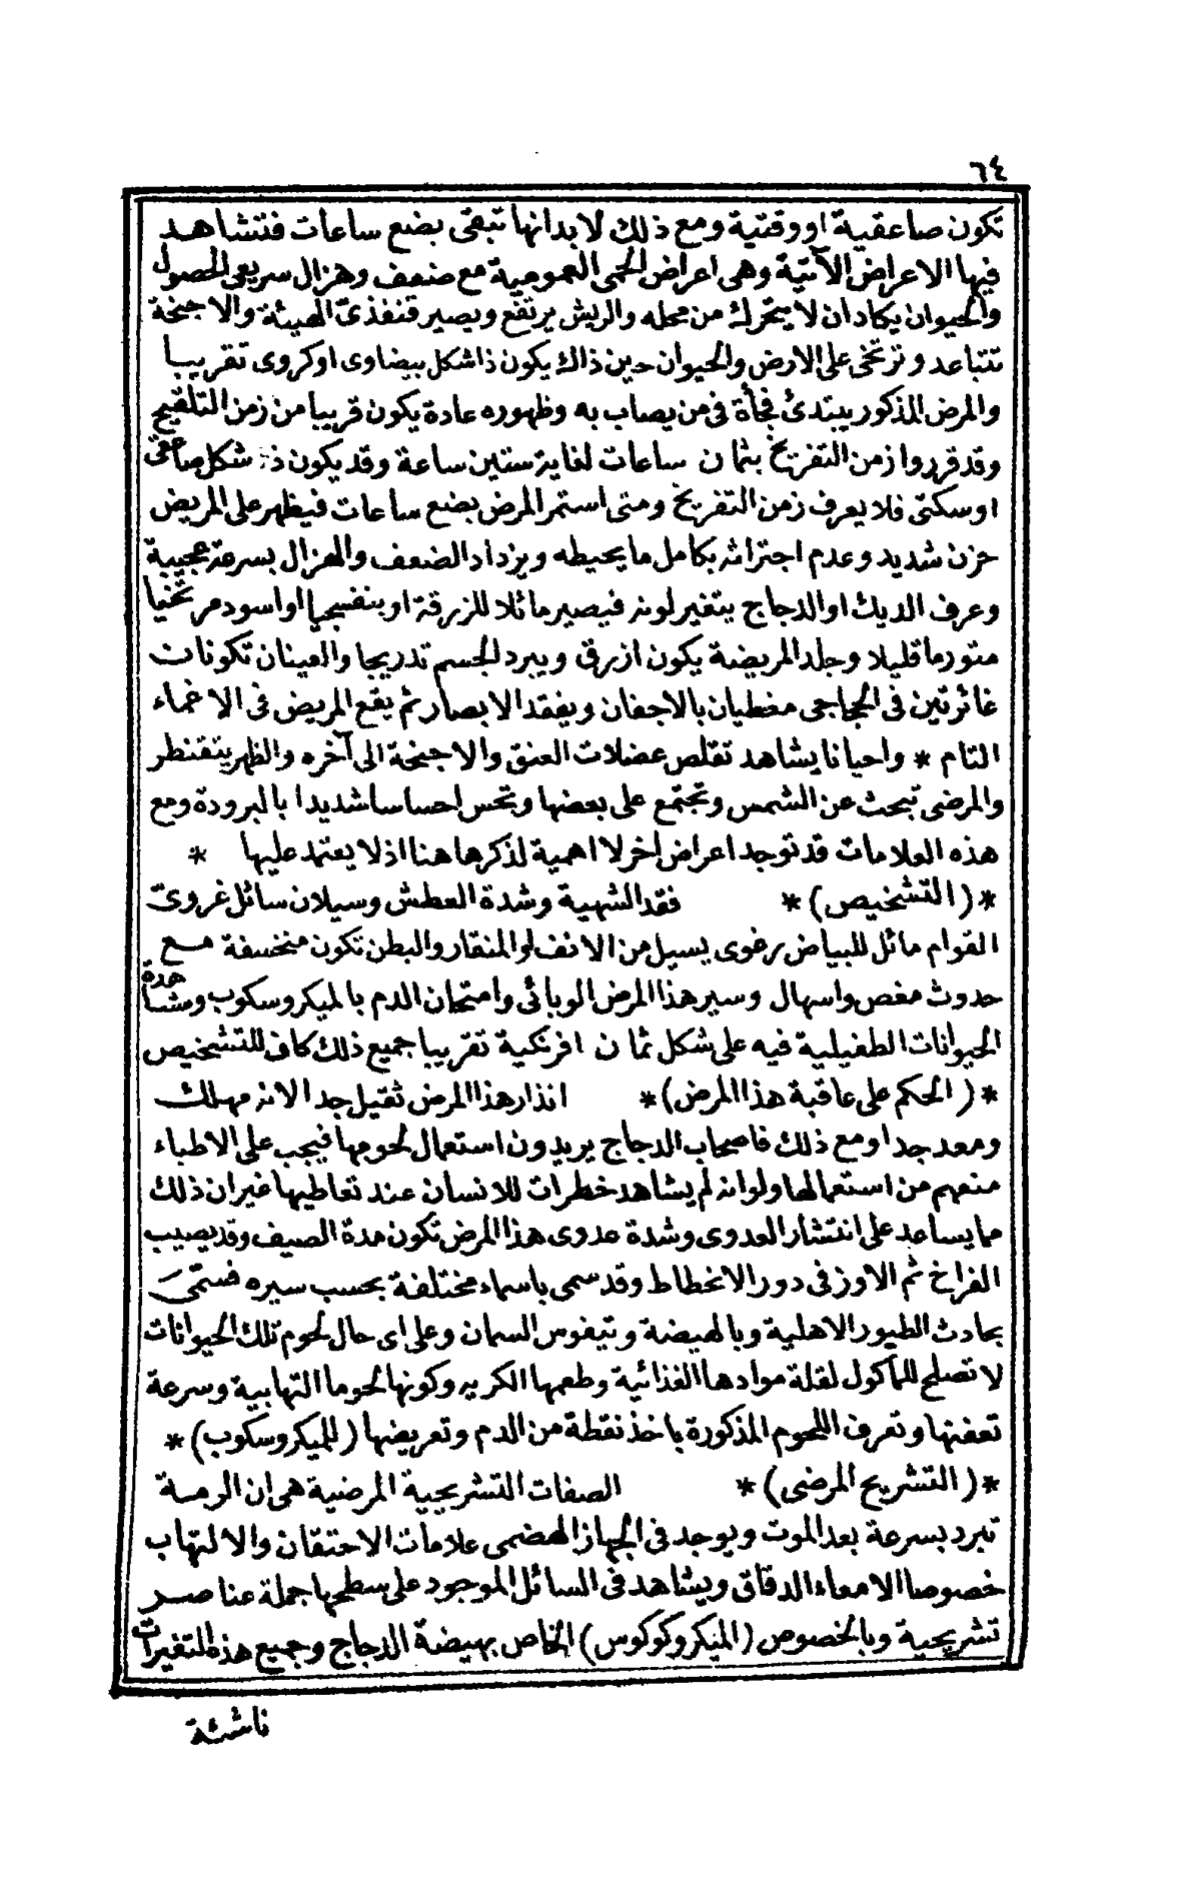 ٦٤
تكون صاعقية او وقتية ومع ذلك لا بد انها تبقى بضع ساعات فتشاهد
فيها الاعراض الآتية وهى اعراض الحمى العمومية مع ضعف وهزال سريعى الحصول
والحيوان يكاد ان لا يتحرك من محله والريش يرتفع ويصير قنفذى الهيئة والاجنحة
تتباعد وترتخى على الارض والحيوان حين ذاك يكون ذا شكل بيضاوى او كروى تقريبا
والمرض المذكور يبتدئ فجأة فى من يصاب به وظهوره عادة يكون قريبا من زمن التلقيح
وقد قرروا زمن التفريخ بثمان ساعات لغاية ستين ساعة وقد يكون ذا شكل صاعقى
او سكتى فلا يعرف زمن التفريخ ومتى استمر المرض بضع ساعات فيظهر على المريض
حزن شديد وعدم اجتراثه بكامل ما يحيطه ويزداد الضعف والهزال بسرعة عجيبة
وعرف الديك او الدجاج يتغير لونه فيصير مائلا للزرقة او بنفسجيا او اسود مرتخيا
متورما قليلا وجلد المريضة يكون ازرق ويبرد الجسم تدريجا والعينان تكونان
غائرتين فى الحجاجى مغطيان بالاجفان ويفقد الابصار ثم يقع المريض فى الاغماء
التام * واحيانا يشاهد تقلص عضلات العنق والاجنحة الى آخره والظهر يتقنطر
والمرضى تبحث عن الشمس وتجتمع على بعضها وتحس احساسا شديدا بالبرودة ومع
هذه العلامات قد توجد اعراض اخر لا اهمية لذكرها هنا اذ لا يعتمد عليها *
* ( التشخيص ) * فقد الشهية وشدة العطش وسيلان سائل غروى
القوام مائل للبياض رغوى يسيل من الانف او المنقار والبطن تكون منخسفة مع
حدوث مغص واسهال وسير هذا المرض الوبائى وامتحان الدم بالميكروسكوب ومشاهدة
الحيوانات الطفيلية فيه على شكل ثمان افرنكية تقريبا جميع ذلك كاف للتشخيص
* ( الحكم على عاقبة هذا المرض ) * انذار هذا المرض ثقيل جدا لانه مهلك
ومعد جدا ومع ذلك فاصحاب الدجاج يريدون استعمال لحومها فيجب على الاطباء
منعهم من استعمالها ولو انه لم يشاهد خطرات للانسان عند تعاطيها غير ان ذلك
مما يساعد على انتشار العدوى وشدة عدوى هذا المرض تكون مدة الصيف وقد يصيب
الفراخ ثم الاوز فى دور الانحطاط وقد سمى باسماء مختلفة بحسب سيره فسمى
بحادث الطيور الاهلية وبالهيضة وتيفوس السمان وعلى اى حال لحوم تلك الحيوانات
لا تصلح للمأكول لقلة موادها الغذائية وطعمها الكريه وكونها لحوما التهابية وسرعة
تعفنها وتعرف اللحوم المذكورة باخذ نقطة من الدم وتعريضها ( للميكروسكوب ) *
* ( التشريح المرضى ) * الصفات التشريحية المرضية هى ان الرمة
تبرد بسرعة بعد الموت ويوجد فى الجهاز الهضمى علامات الاحتقان والالتهاب
خصوصا الامعاء الدقاق ويشاهد فى السائل الموجود على سطحها جملة عناصر
تشريحية وبالخصوص ( الميكروكوكوس ) الخاص بهيضة الدجاج وجميع هذه التغيرات
ناشئة